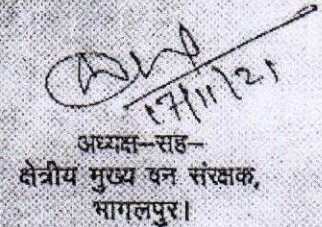 17/11/21
अध्यक्ष-सह-
क्षेत्रीय मुख्य वन संरक्षक,
भागलपुर।